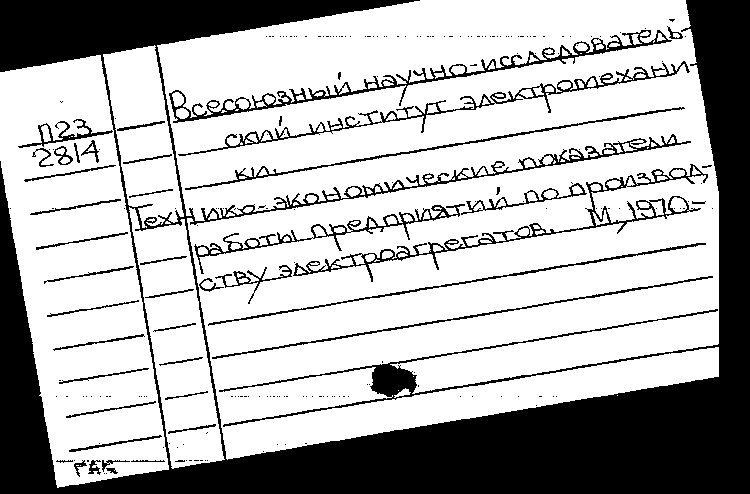 Всесоюзный научно-исследователь-
П23 ский институт электромехани-
2814 ки.
Технико-экономические показатели
работы предприятий по производ-
ству электроагрегатов. М., 1970-
ГАК